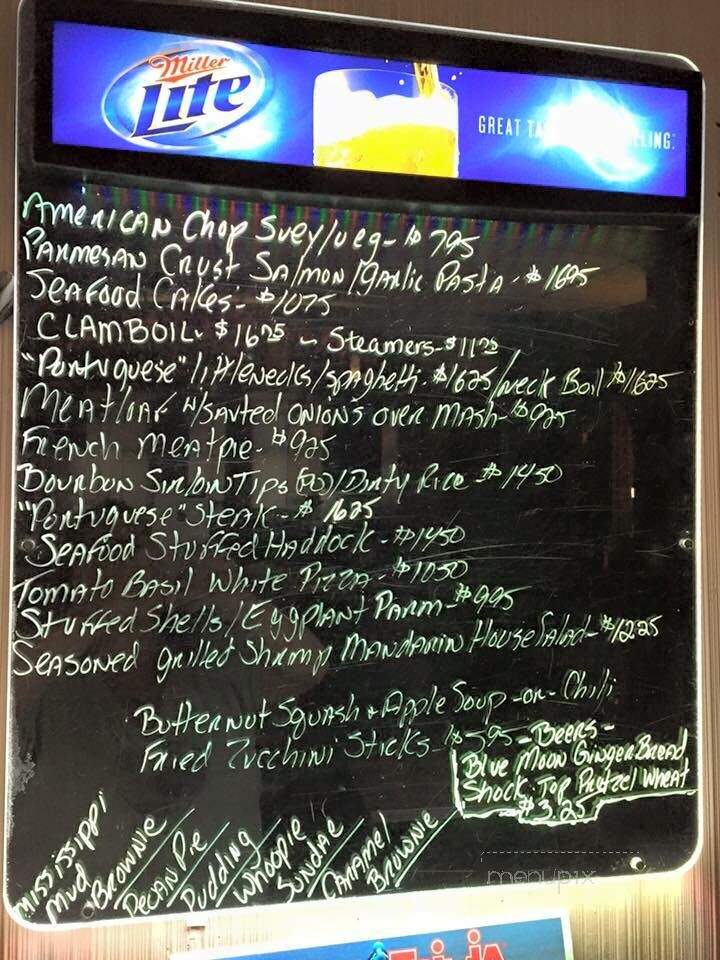 Miller
Lite
GREAT TA ELING:
AMERICAN Chop Suey/veg - $7.95
PARMESAN Crust Salmon/Garlic Pasta - $16.95
Seafood Cakes - $10.75
CLAMBOIL - $16.25 - Steamers - $11.75
"Portuguese" littlenecks/spaghetti - $16.25/neck Boil $16.25
Meatloaf w/sauted onions over mash - $9.25
French meatpie - $9.25
Bourbon Sirloin Tips /Dirty Rice $14.50
"Portuguese" Steak - $16.25
Seafood Stuffed Haddock - $14.50
Tomato Basil White Pizza - $10.50
Stuffed Shells/Eggplant Parm - $9.95
Seasoned grilled Shrimp Mandarin House Salad - $12.25
Butternut Squash + Apple Soup - or - Chili
Fried Zucchini Sticks - $5.95
- Beers -
Blue Moon GingerBread
Shock Top Pretzel Wheat
$3.25
Mississippi Mud Brownie/
Pecan Pie/
Pudding/
Whoopie Sundae/
Caramel Brownie/
menupix
Trivia